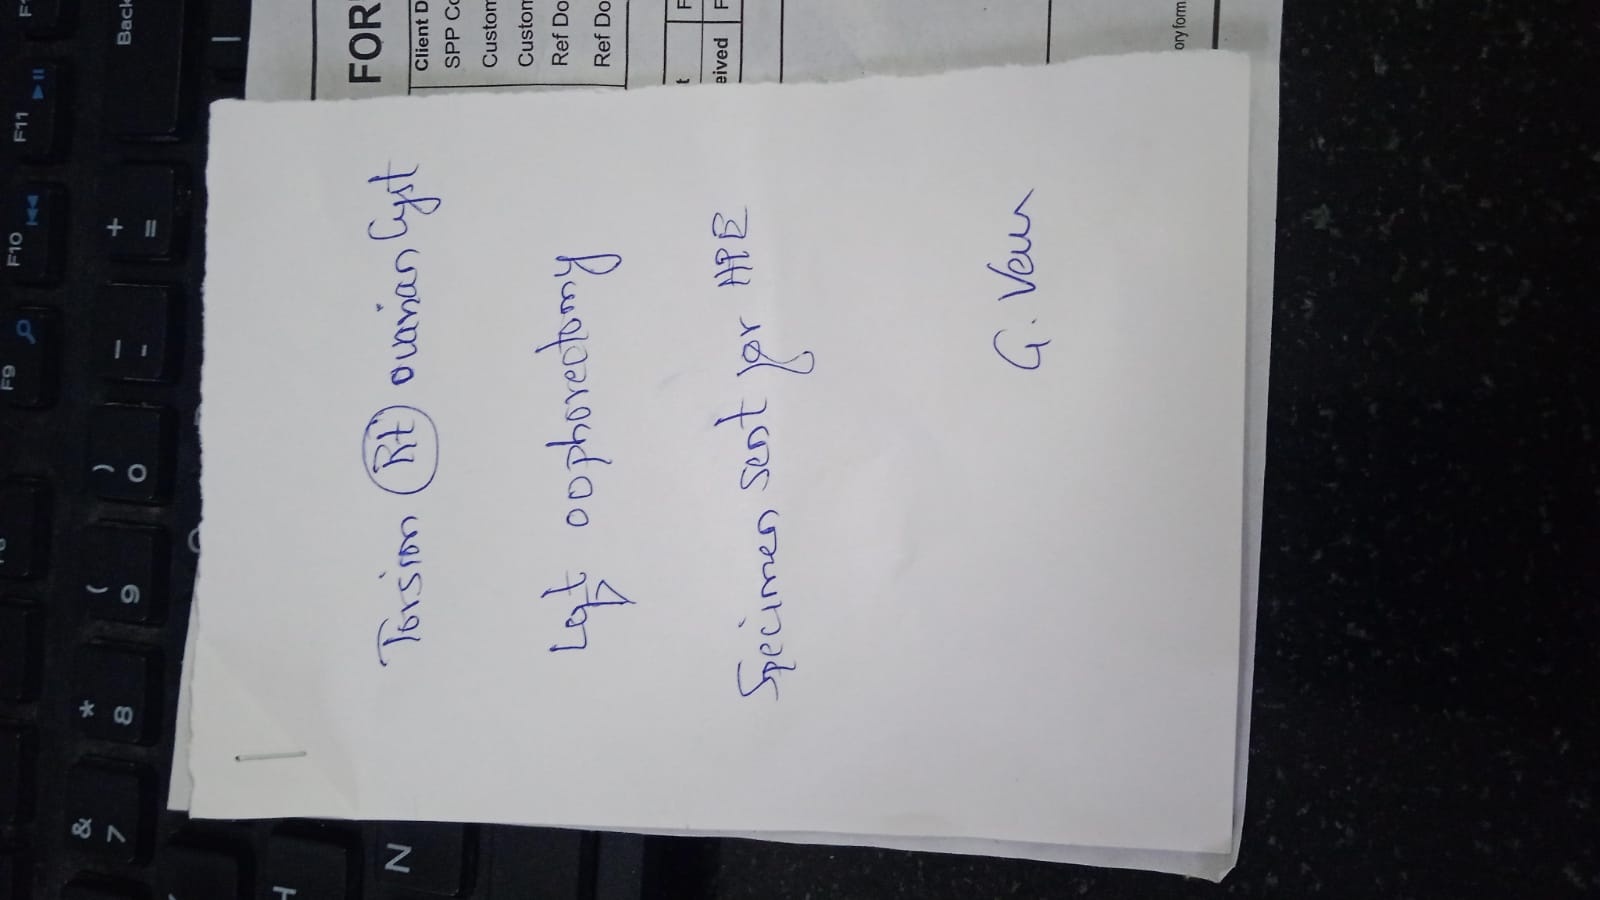 FOR
Client D
SPP Co
Custom
Custom
Ref Do
Ref Do
eived
ory form
Torsion Rt ovarian Cyst
Left oophorectomy
Specimen sent for HPE
G. Ven
F11
F10
F9
Back
+
=
-
)
0
(
9
*
8
&
7
N
H